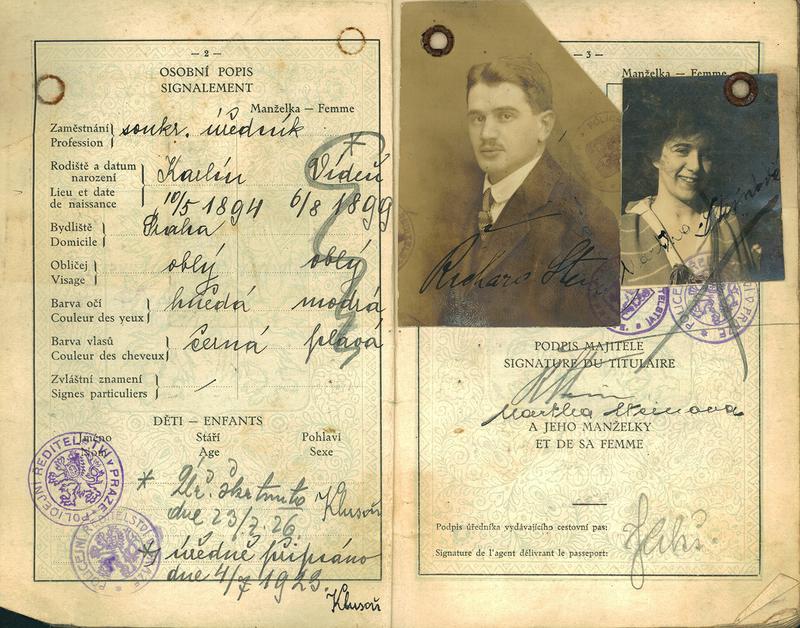 — 2 —
OSOBNÍ POPIS
SIGNALEMENT
Manželka — Femme
Zaměstnání
Profession
soukr. úředník
Rodiště a datum
narození
Karlín Vídeň
Lieu et date
de naissance
10/5 1894 6/8 1899
Bydliště
Domicile
Praha
Obličej
Visage
oblý oblý
Barva očí
Couleur des yeux
hnědá modrá
Barva vlasů
Couleur des cheveux
černá plavá
Zvláštní znamení
Signes particuliers
DĚTI — ENFANTS
Jméno Stáří Pohlaví
Nom Age Sexe
* Úř. škrtnuto
dne 23/7. 26. Klusoň
* úředně připsáno
dne 4/7 1923.
Klusoň
POLICEJNÍ ŘEDITELSTVÍ V PRAZE
— 3 —
Manželka — Femme
Richard
Martha Steinová
PODPIS MAJITELE
SIGNATURE DU TITULAIRE
Martha Steinova
A JEHO MANŽELKY
ET DE SA FEMME
Podpis úředníka vydávajícího cestovní pas:
Signature de l'agent délivrant le passeport: